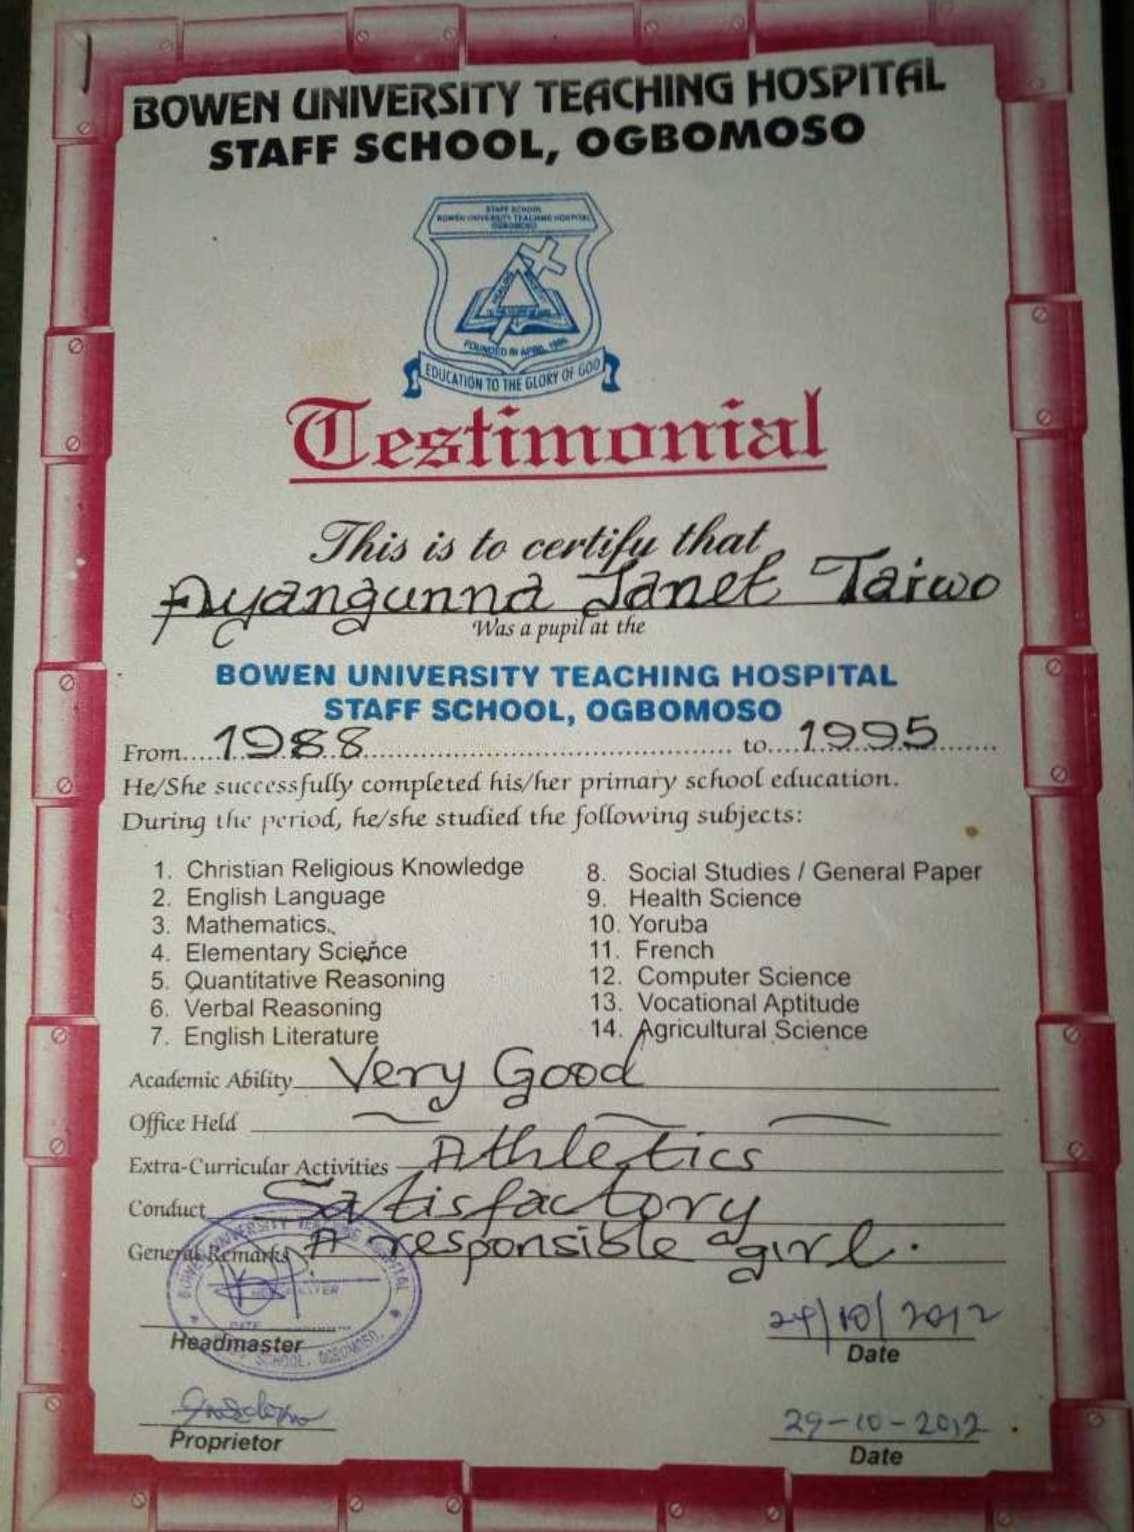 BOWEN UNIVERSITY TEACHING HOSPITAL
STAFF SCHOOL, OGBOMOSO
STAFF SCHOOL
BOWEN UNIVERSITY TEACHING HOSPITAL
OGBOMOSO
HEALING
FOUNDED IN APRIL
EDUCATION TO THE GLORY OF GOD
Testimonial
This is to certify that
Ayangunna Janet Taiwo
Was a pupil at the
BOWEN UNIVERSITY TEACHING HOSPITAL
STAFF SCHOOL, OGBOMOSO
From....1988.................................... to....1995........
He/She successfully completed his/her primary school education.
During the period, he/she studied the following subjects:
1. Christian Religious Knowledge
2. English Language
3. Mathematics.
4. Elementary Science
5. Quantitative Reasoning
6. Verbal Reasoning
7. English Literature
8. Social Studies / General Paper
9. Health Science
10. Yoruba
11. French
12. Computer Science
13. Vocational Aptitude
14. Agricultural Science
Academic Ability Very Good
Office Held
Extra-Curricular Activities Athletics
Conduct Satisfactory
General Remarks A responsible girl.
BOWEN UNIVERSITY TEACHING HOSPITAL
HEADMASTER
DATE
SCHOOL, OGBOMOSO.
Headmaster
/10/2012
Date
Proprietor
29-10-2012.
Date